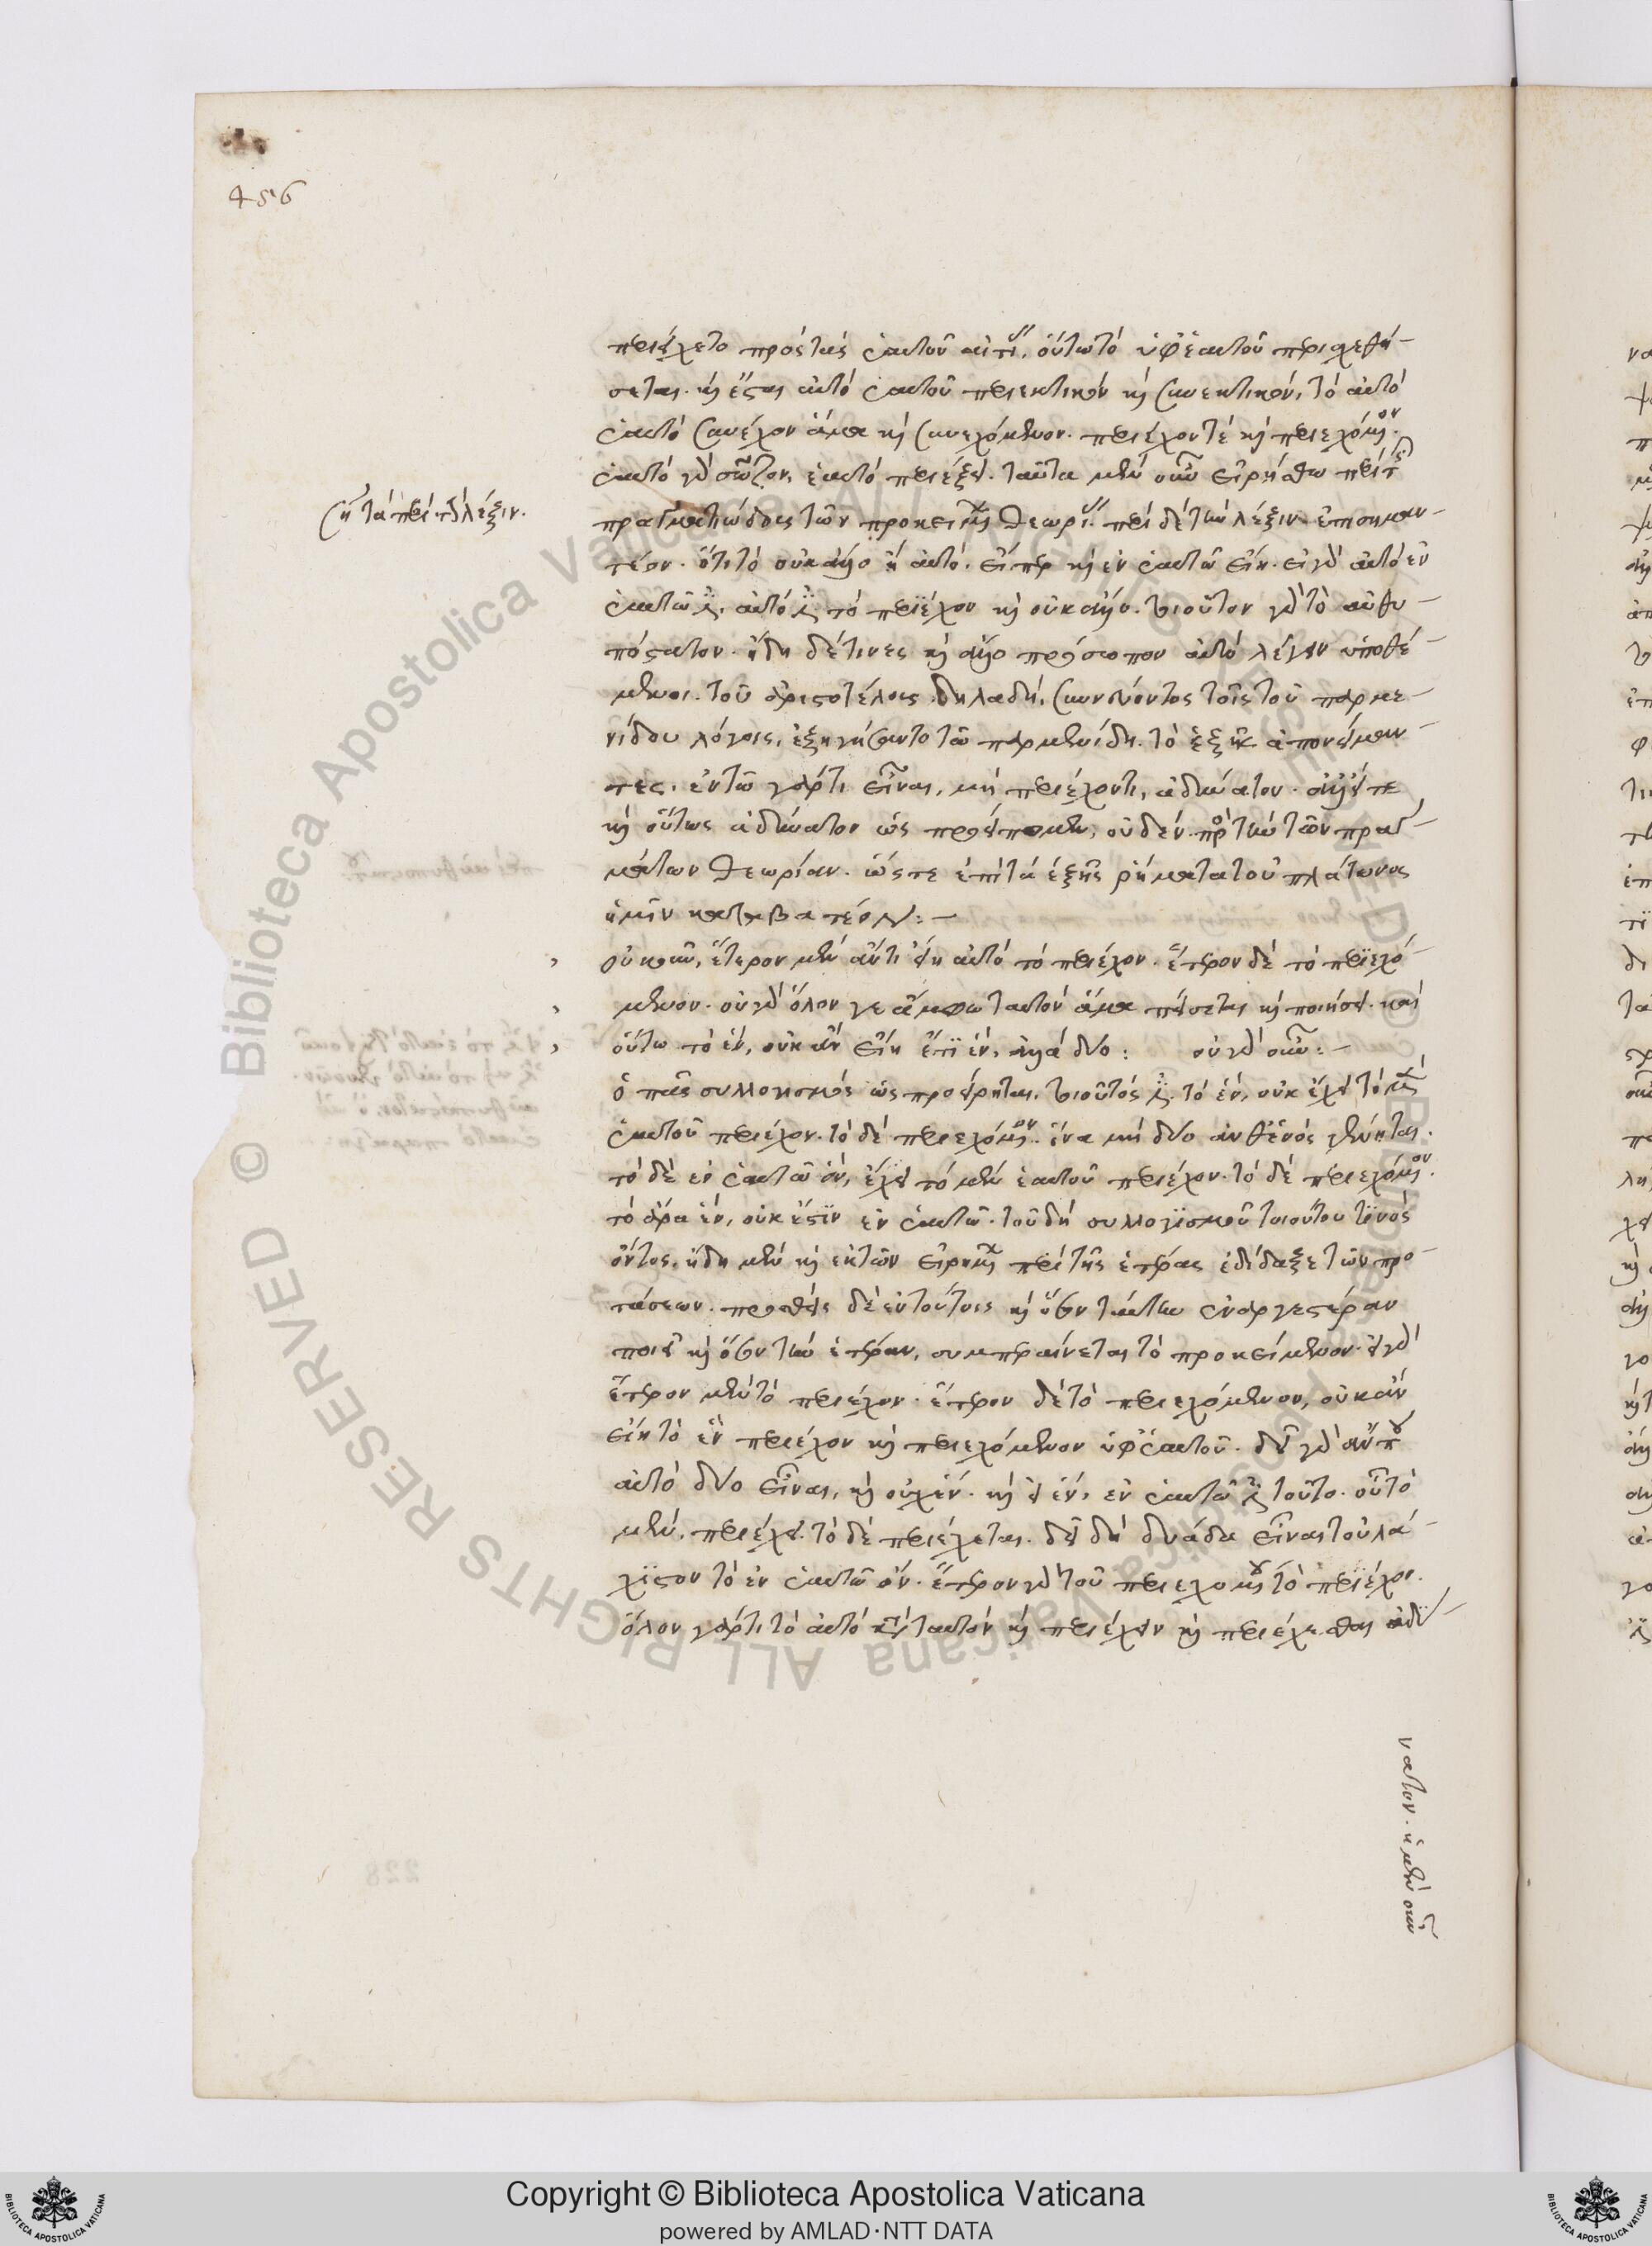 456
περιείχετο πρὸς τὰς ἑαυτοῦ αἰτίας, οὕτω τὸ ὑφ' ἑαυτοῦ περισχεθή-
σεται. καὶ ἔσται αὐτὸ ἑαυτοῦ περιεκτικὸν καὶ συνεκτικὸν, τὸ αὐτὸ
ἑαυτὸ συνέχον ἅμα καὶ συνεχόμενον. περιέχον τὲ καὶ περιεχόμενον.
ἑαυτὸ γὰρ σῶζον, ἑαυτὸ περιέξει. ταῦτα μὲν οὖν εἰρήσθω περὶ τῆς
πραγματιώδους τῶν προκειμένων θεωρίας. περὶ δὲ τὴν λέξιν ἐπισημαν-
τέον. ὅτι τὸ οὐκ ἄλλο ἢ αὐτὸ. εἴπερ καὶ ἐν ἑαυτῶ εἴη. εἰ γὰρ αὐτὸ ἐν
ἑαυτῶ ἐστι, αὐτό ἐστι τὸ περιέχον καὶ οὐκ ἄλλο. τοιοῦτον γὰρ τὸ αὐθυ-
πόστατον. ἤδη δέ τινες καὶ ἄλλο πρόσωπον αὐτὸ λέγειν ὑποθέ-
μενοι. τοῦ ἀριστοτέλους δηλαδὴ, συννεύοντος τοῖς τοῦ παρμε-
νίδου λόγοις, ἐξηγήσαντο τῶ παρμενίδη. τὸ ἑξῆς ἀπονείμαν-
τες. ἐν τῶ γάρ τι εἶναι, μὴ περιέχοντι, ἀδύνατον. ἀλλ' εἴτε
καὶ οὕτως ἀδύνατον ὡς προείπομεν, οὐδὲν πρὸς τὴν τῶν πραγ-
μάτων θεωρίαν. ὥστε ἐπὶ τὰ ἑξῆς ῥήματα τοῦ πλάτωνος
ἡμῖν μεταβατέον:-
οὐκοῦν, ἕτερον μὲν ἄν τι εἴη αὐτὸ τὸ περιέχον. ἕτερον δὲ τὸ περιεχό-
μενον. οὐ γὰρ ὅλον γε ἄμφω ταυτὸν ἅμα πείσεται καὶ ποιήσει. καὶ
οὕτω τὸ ἓν, οὐκ ἂν εἴη ἔτι ἓν, ἀλλὰ δύο: οὐ γὰρ οὖν:-
ὁ πᾶς συλλογισμὸς ὡς προείρηται, τοιοῦτός ἐστι. τὸ ἓν, οὐκ ἔχει τὸ μὲν
ἑαυτοῦ περιέχον. τὸ δὲ περιεχόμενον. ἵνα μὴ δύο ἀνθ' ἑνὸς γένηται.
τὸ δὲ ἐν ἑαυτῶ ὂν, ἔχει τὸ μὲν ἑαυτοῦ περιέχον. τὸ δὲ περιεχόμενον.
τὸ ἄρα ἓν, οὐκ ἔστιν ἐν ἑαυτῶ. τοῦ δὴ συλλογισμοῦ τοιούτου τινὸς
ὄντος, ἤδη μὲν καὶ ἐκ τῶν εἰρημένων περὶ τῆς ἑτέρας ἐδίδαξε τῶν προ-
τάσεων. προσθεὶς δὲ ἐν τούτοις καὶ ὅθεν ταύτην ἐναργεστέραν
ποιεῖ καὶ ὅθεν τὴν ἑτέραν, συμπεραίνεται τὸ προκείμενον. εἰ γὰρ
ἕτερον μὲν τὸ περιέχον. ἕτερον δὲ τὸ περιεχόμενον, οὐκ ἂν
εἴη τὸ ἓν περιέχον καὶ περιεχόμενον ὑφ' ἑαυτοῦ.
αὐτὸ δύο εἶναι, καὶ οὐχ ἕν. καὶ εἰ ἓν, ἐν ἑαυτῶ ἐστι τοῦτο. οὗ τὸ
μὲν, περιέχει. τὸ δὲ περιέχεται. δεῖ δὴ δυάδα εἶναι τοὐλά-
χιστον τὸ ἐν ἑαυτῶ ὄν. ἕτερον γὰρ τοῦ περιεχομένου τὸ περιέχον.
ὅλον γάρ τι τὸ αὐτὸ κατὰ ταυτὸν καὶ περιέχειν καὶ περιέχεσθαι ἀδύ-
νατον. εἰ μὲν οὖν
τὰ περὶ τὴν λέξιν.
© Biblioteca Apostolica Vaticana ALL RIGHTS RESERVED
Copyright © Biblioteca Apostolica Vaticana
powered by AMLAD·NTT DATA
BIBLIOTECA APOSTOLICA VATICANA
BIBLIOTECA APOSTOLICA VATICANA